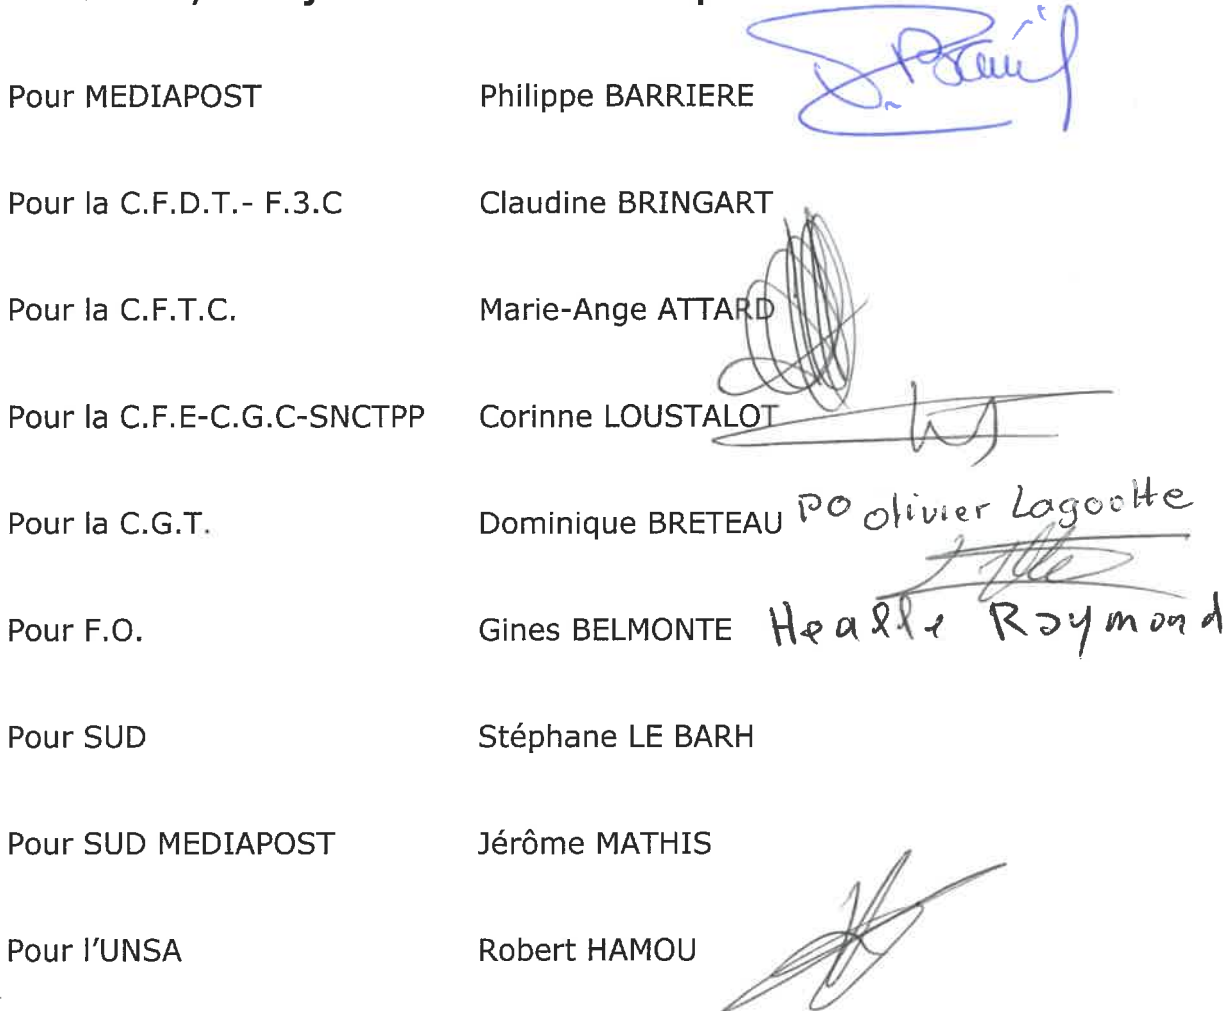 Pour MEDIAPOST Philippe BARRIERE
Pour la C.F.D.T.- F.3.C Claudine BRINGART
Pour la C.F.T.C. Marie-Ange ATTARD
Pour la C.F.E-C.G.C-SNCTPP Corinne LOUSTALOT
Pour la C.G.T. Dominique BRETEAU PO olivier Lagootte
Pour F.O. Gines BELMONTE Healle Raymond
Pour SUD Stéphane LE BARH
Pour SUD MEDIAPOST Jérôme MATHIS
Pour l'UNSA Robert HAMOU